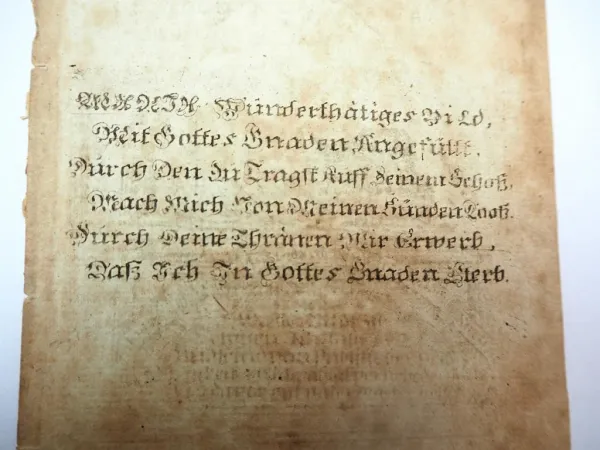 MARIA Wünderthätiges Bild,
Mit Gottes Gnaden Angefüllt.
Durch Den Du Tragst Auff Deinem Schoß,
Mach Mich Von Meinen Sünden Looß.
Durch Deine Thränen Mir Erwerb,
Daß Ich In Gottes Gnaden Sterb.